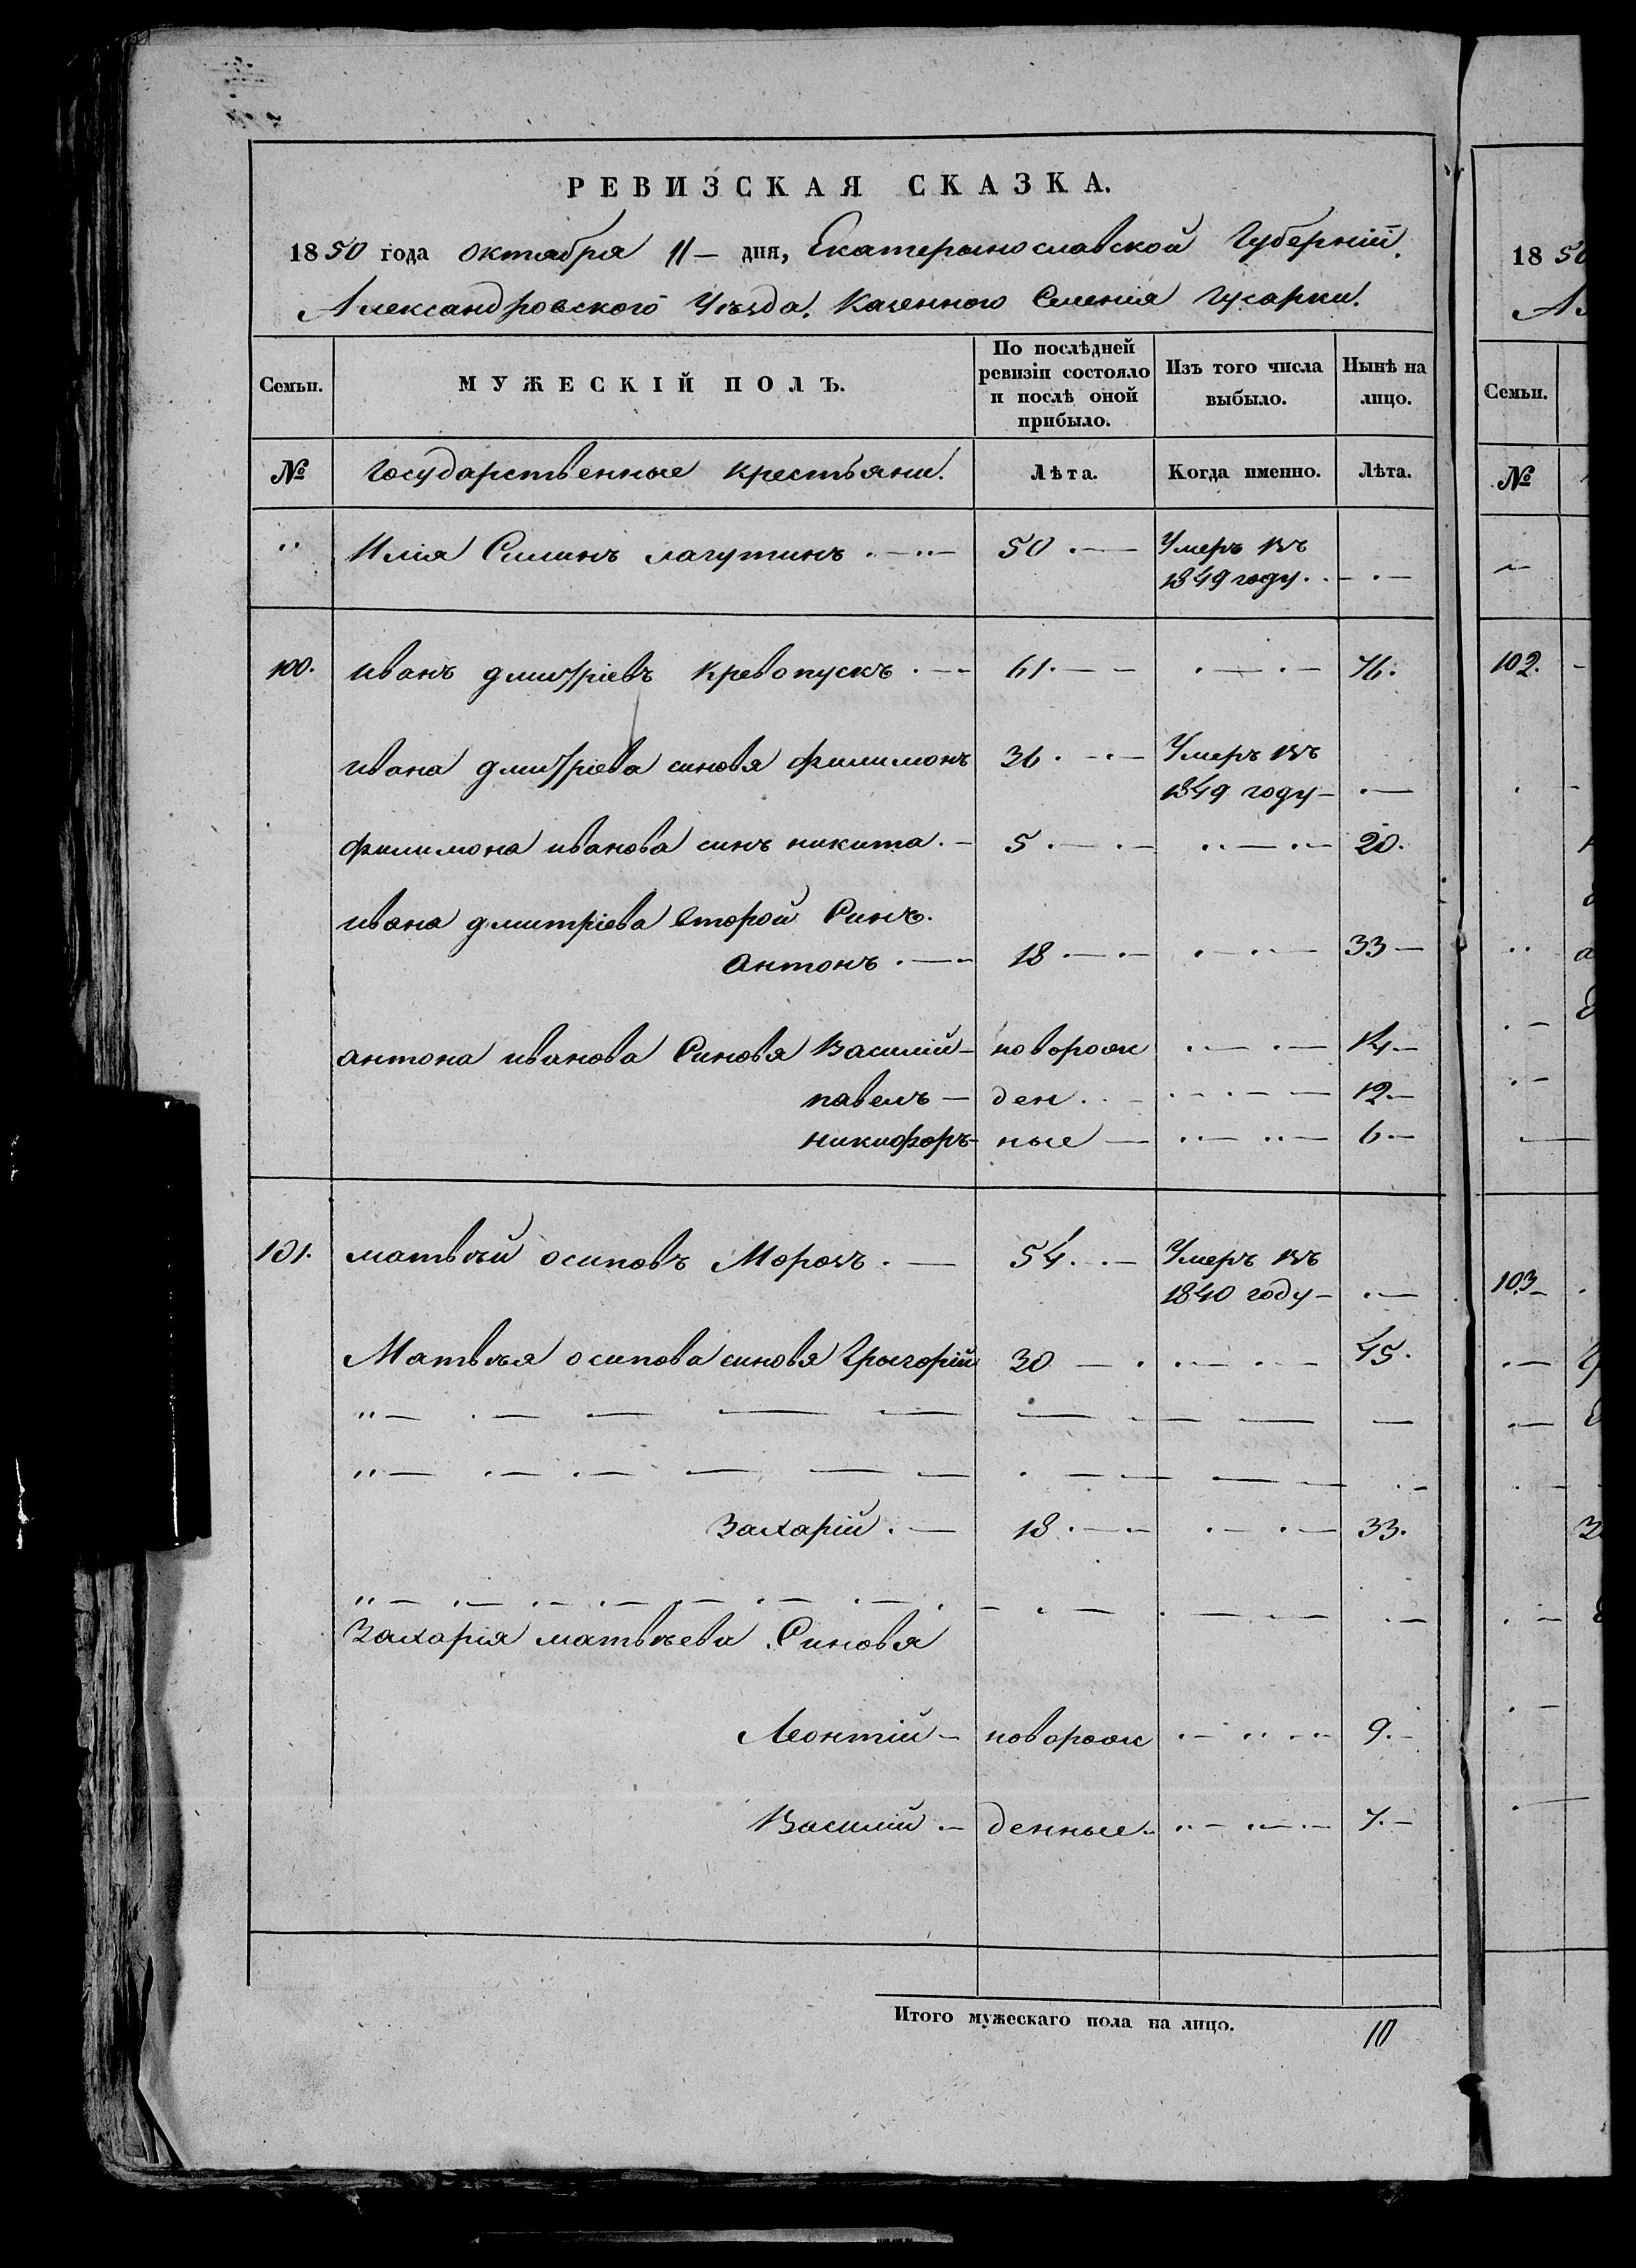 РЕВИЗСКАЯ СКАЗКА.
1850 года октября 11 — дня, Екатериннославской Губерніи.
Александровского Уѣзда, Казенного Селенія Гусарки.
Семьи. МУЖЕСКІЙ ПОЛЪ. По послѣдней ревизіи состояло и послѣ оной прибыло. Изъ того числа выбыло. Нынѣ на лицо.
№ Государственные крестьяни. Лѣта. Когда именно. Лѣта.
" Илія Силинъ лагутинъ 50 Умеръ въ
1849 году.
100. иванъ дмитріевъ кревопускъ 61 76.
ивана дмитріева синовя филимонъ 36 Умеръ въ
1849 году
филимона иванова синъ никита 5 20.
ивана дмитріева второй Синъ.
антонъ 18 33
антона иванова Синовя Василій новорож 14
павелъ ден 12
никифоръ ные 6
101. матвѣй осиповъ Морозъ 54 Умеръ въ
1840 году
Матвѣя осипова синовя Григорій 30 45.
Захарій 18 33.
Захарія матвѣева Синовя
Леонтій новорож 9.
Василій денные 7.
Итого мужескаго пола на лицо. 10
1850
Семьи.
№
102.
103